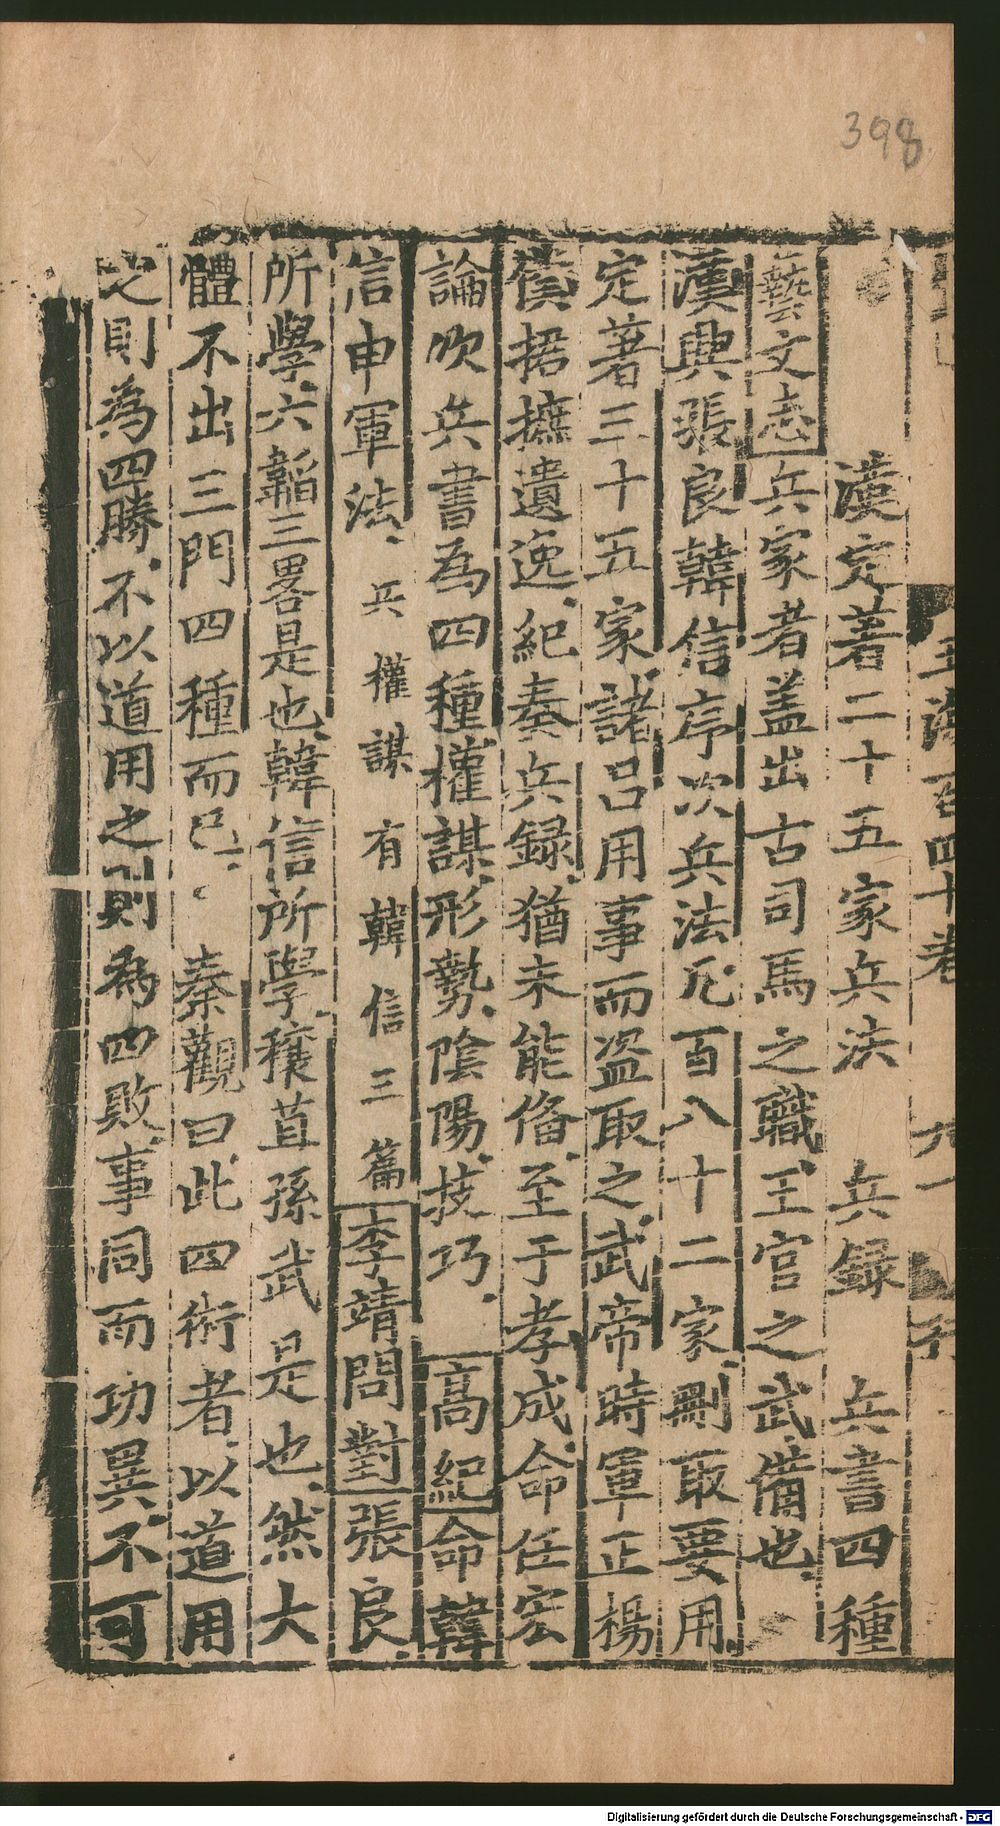 398
玉海一百四十卷
漢定著二十五家兵法　兵録　兵書四種
藝文志兵家者盖出古司馬之職王官之武備也
漢興張良韓信序次兵法凡百八十二家刪取要用
定著三十五家諸吕用事而盗取之武帝時軍正楊
僕捃摭遺逸紀奏兵録猶未能僃至于孝成命任宏
論次兵書為四種權謀形勢陰陽技巧高紀命韓
信申軍法兵權謀有韓信三篇李靖問對張良
所學六韜三畧是也韓信所學穰苴孫武是也然大
體不出三門四種而已秦觀曰此四術者以道用
之則為四勝不以道用之則為四敗事同而功異不可
Digitalisierung gefördert durch die Deutsche Forschungsgemeinschaft - DFG